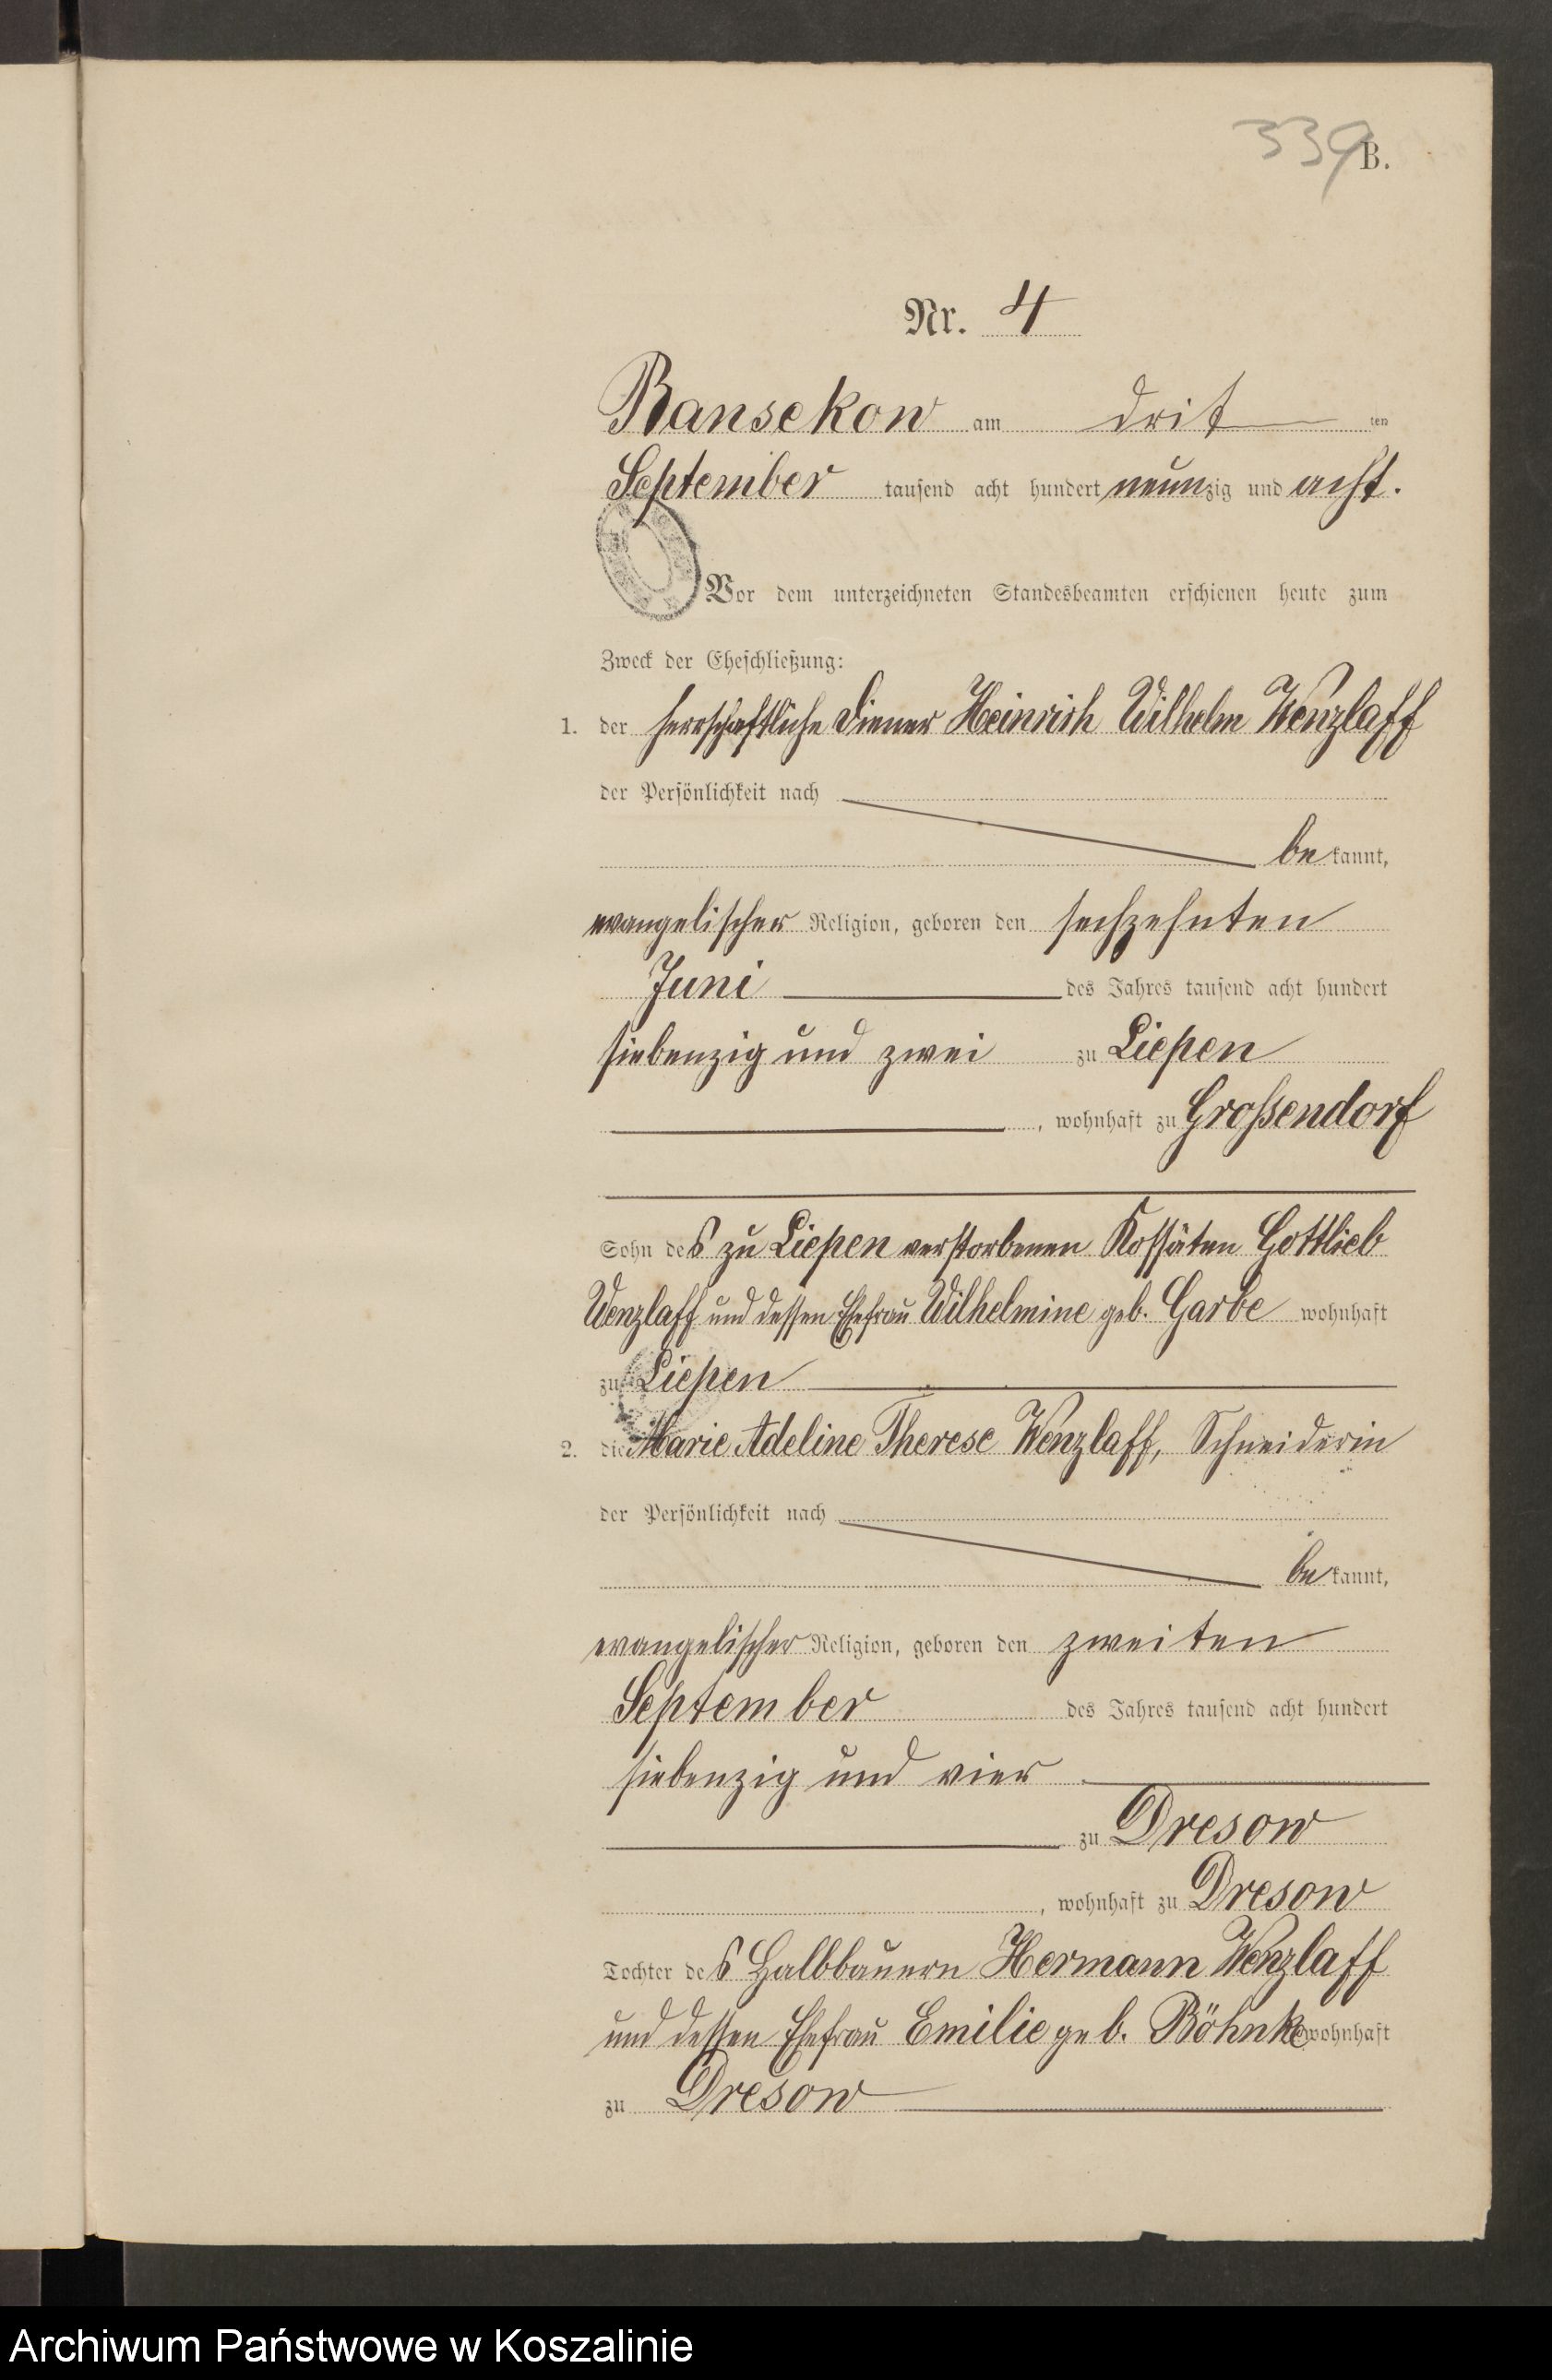 339
B.
Nr. 4
Bansekow am drit ten
September tausend acht hundert neunzig und acht.
Vor dem unterzeichneten Standesbeamten erschienen heute zum
Zweck der Eheschließung:
1. der herrschaftliche Diener Heinrich Wilhelm Wenzlaff
der Persönlichkeit nach
bekannt,
evangelischer Religion, geboren den sechzehnten
Juni des Jahres tausend acht hundert
siebenzig und zwei zu Liepen
, wohnhaft zu Großendorf
Sohn des zu Liepen verstorbenen Kossäten Gottlieb
Wenzlaff und dessen Ehefrau Wilhelmine geb. Garbe wohnhaft
zu Liepen
2. die Marie Adeline Therese Wenzlaff, Schneiderin
der Persönlichkeit nach
bekannt,
evangelischer Religion, geboren den zweiten
September des Jahres tausend acht hundert
siebenzig und vier
zu Dresow
, wohnhaft zu Dresow
Tochter des Halbbauern Hermann Wenzlaff
und dessen Ehefrau Emilie geb. Böhnke wohnhaft
zu Dresow
Archiwum Państwowe w Koszalinie